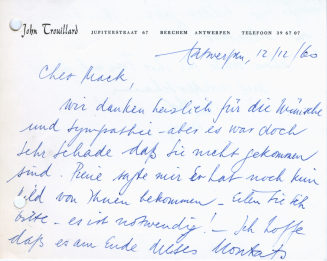 John Trouillard JUPITERSTRAAT 67 BERCHEM ANTWERPEN TELEFOON 39 67 07
Antwerpen, 12/12/60
Cher Mack,
Wir danken herzlich für die Wünsche
und Sympathie – aber es war doch
sehr schade daß Sie nicht gekommen
sind. René sagte mir Er hat noch kein
Bild von Ihnen bekommen – Eilen Sie sich
bitte – es ist notwendig! – Ich hoffe
daß es am Ende dieses Monats